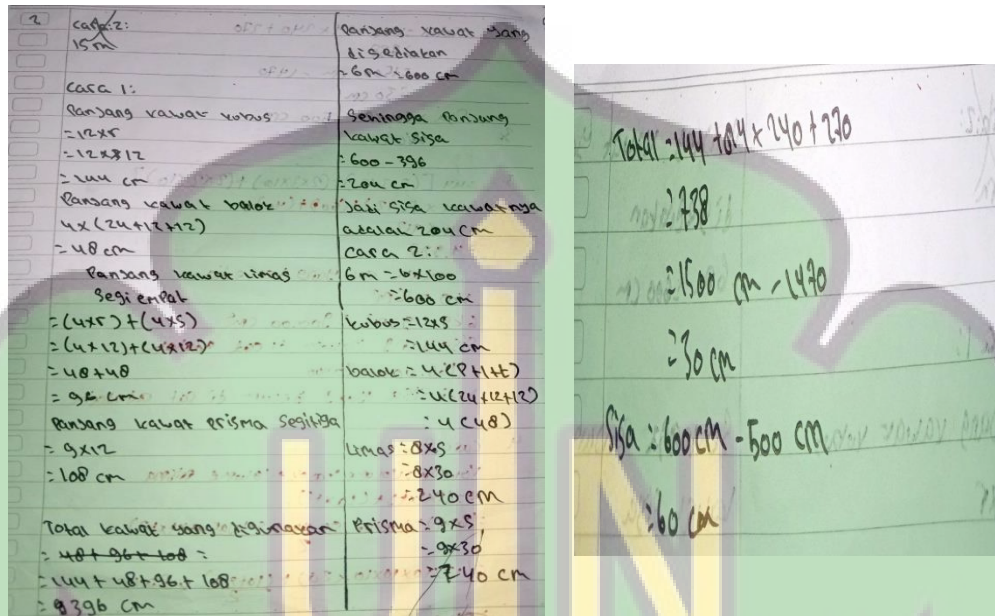 2
cara 2:
15 m
Cara 1:
Panjang kawat kubus
= 12xs
= 12x12
= 144 cm
Panjang kawat balok
4x (24+12+12)
= 48 cm
Panjang kawat limas
Segi empat
= (4xs) + (4xs)
= (4x12)+(4x12)
= 48+48
= 96 cm
Panjang kawat Prisma Segitiga
= 9x12
= 108 cm
Total kawat yang digunakan
= 48+96+108 =
= 144+48+96+108
= 396 cm
Panjang kawat yang
disediakan
= 6m = 600 cm
Sehingga Panjang
kawat Sisa
= 600 - 396
= 204 cm
Jadi Sisa kawatnya
adalah 204 cm
Cara 2:
6 m = 6x100
= 600 cm
kubus = 12xs
= 144 cm
balok = 4(P+l+t)
= 4(24+12+12)
= 4(48)
Limas = 8xs
= 8x30
= 240 cm
Prisma = 9xs
= 9x30
= 740 cm
= 738
= 1500 cm - 1470
= 30 cm
Sisa = 600 cm - 500 cm
= 60 cm